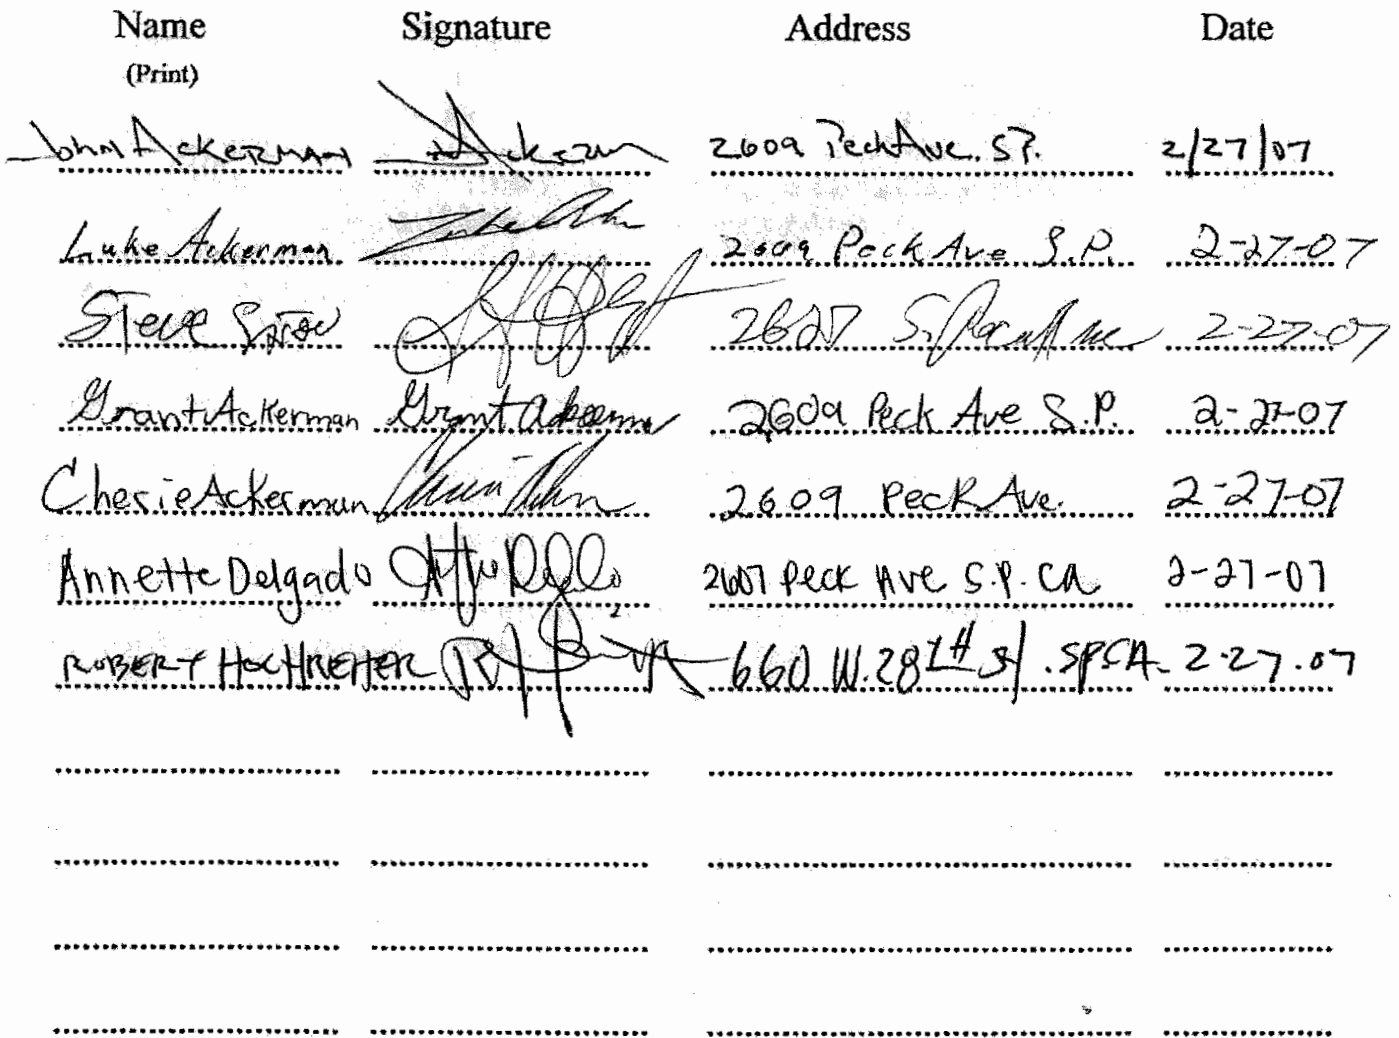 Name Signature Address Date
(Print)
John Ackerman Ackerman 2609 Peck Ave. S.P. 2/27/07
Luke Ackerman 2609 Peck Ave S.P. 2-27-07
Steve 2627 S. Peck Ave 2-27-07
Grant Ackerman Grant Ackerman 2609 Peck Ave S.P. 2-27-07
Cherie Ackerman 2609 Peck Ave. 2-27-07
Annette Delgado 2607 Peck Ave S.P. Ca 2-27-07
ROBERT HOCHREITER 660 W. 28TH St. SP.CA. 2.27.07